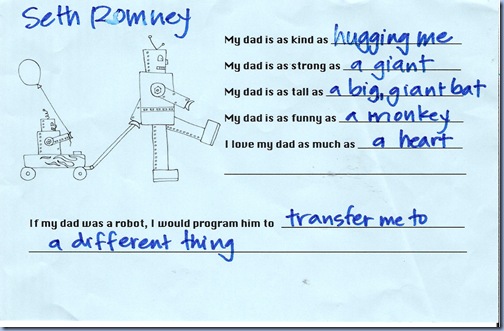 Seth Romney
My dad is as kind as hugging me
My dad is as strong as a giant
My dad is as tall as a big, giant bat
My dad is as funny as a monkey
I love my dad as much as a heart
If my dad was a robot, I would program him to transfer me to
a different thing